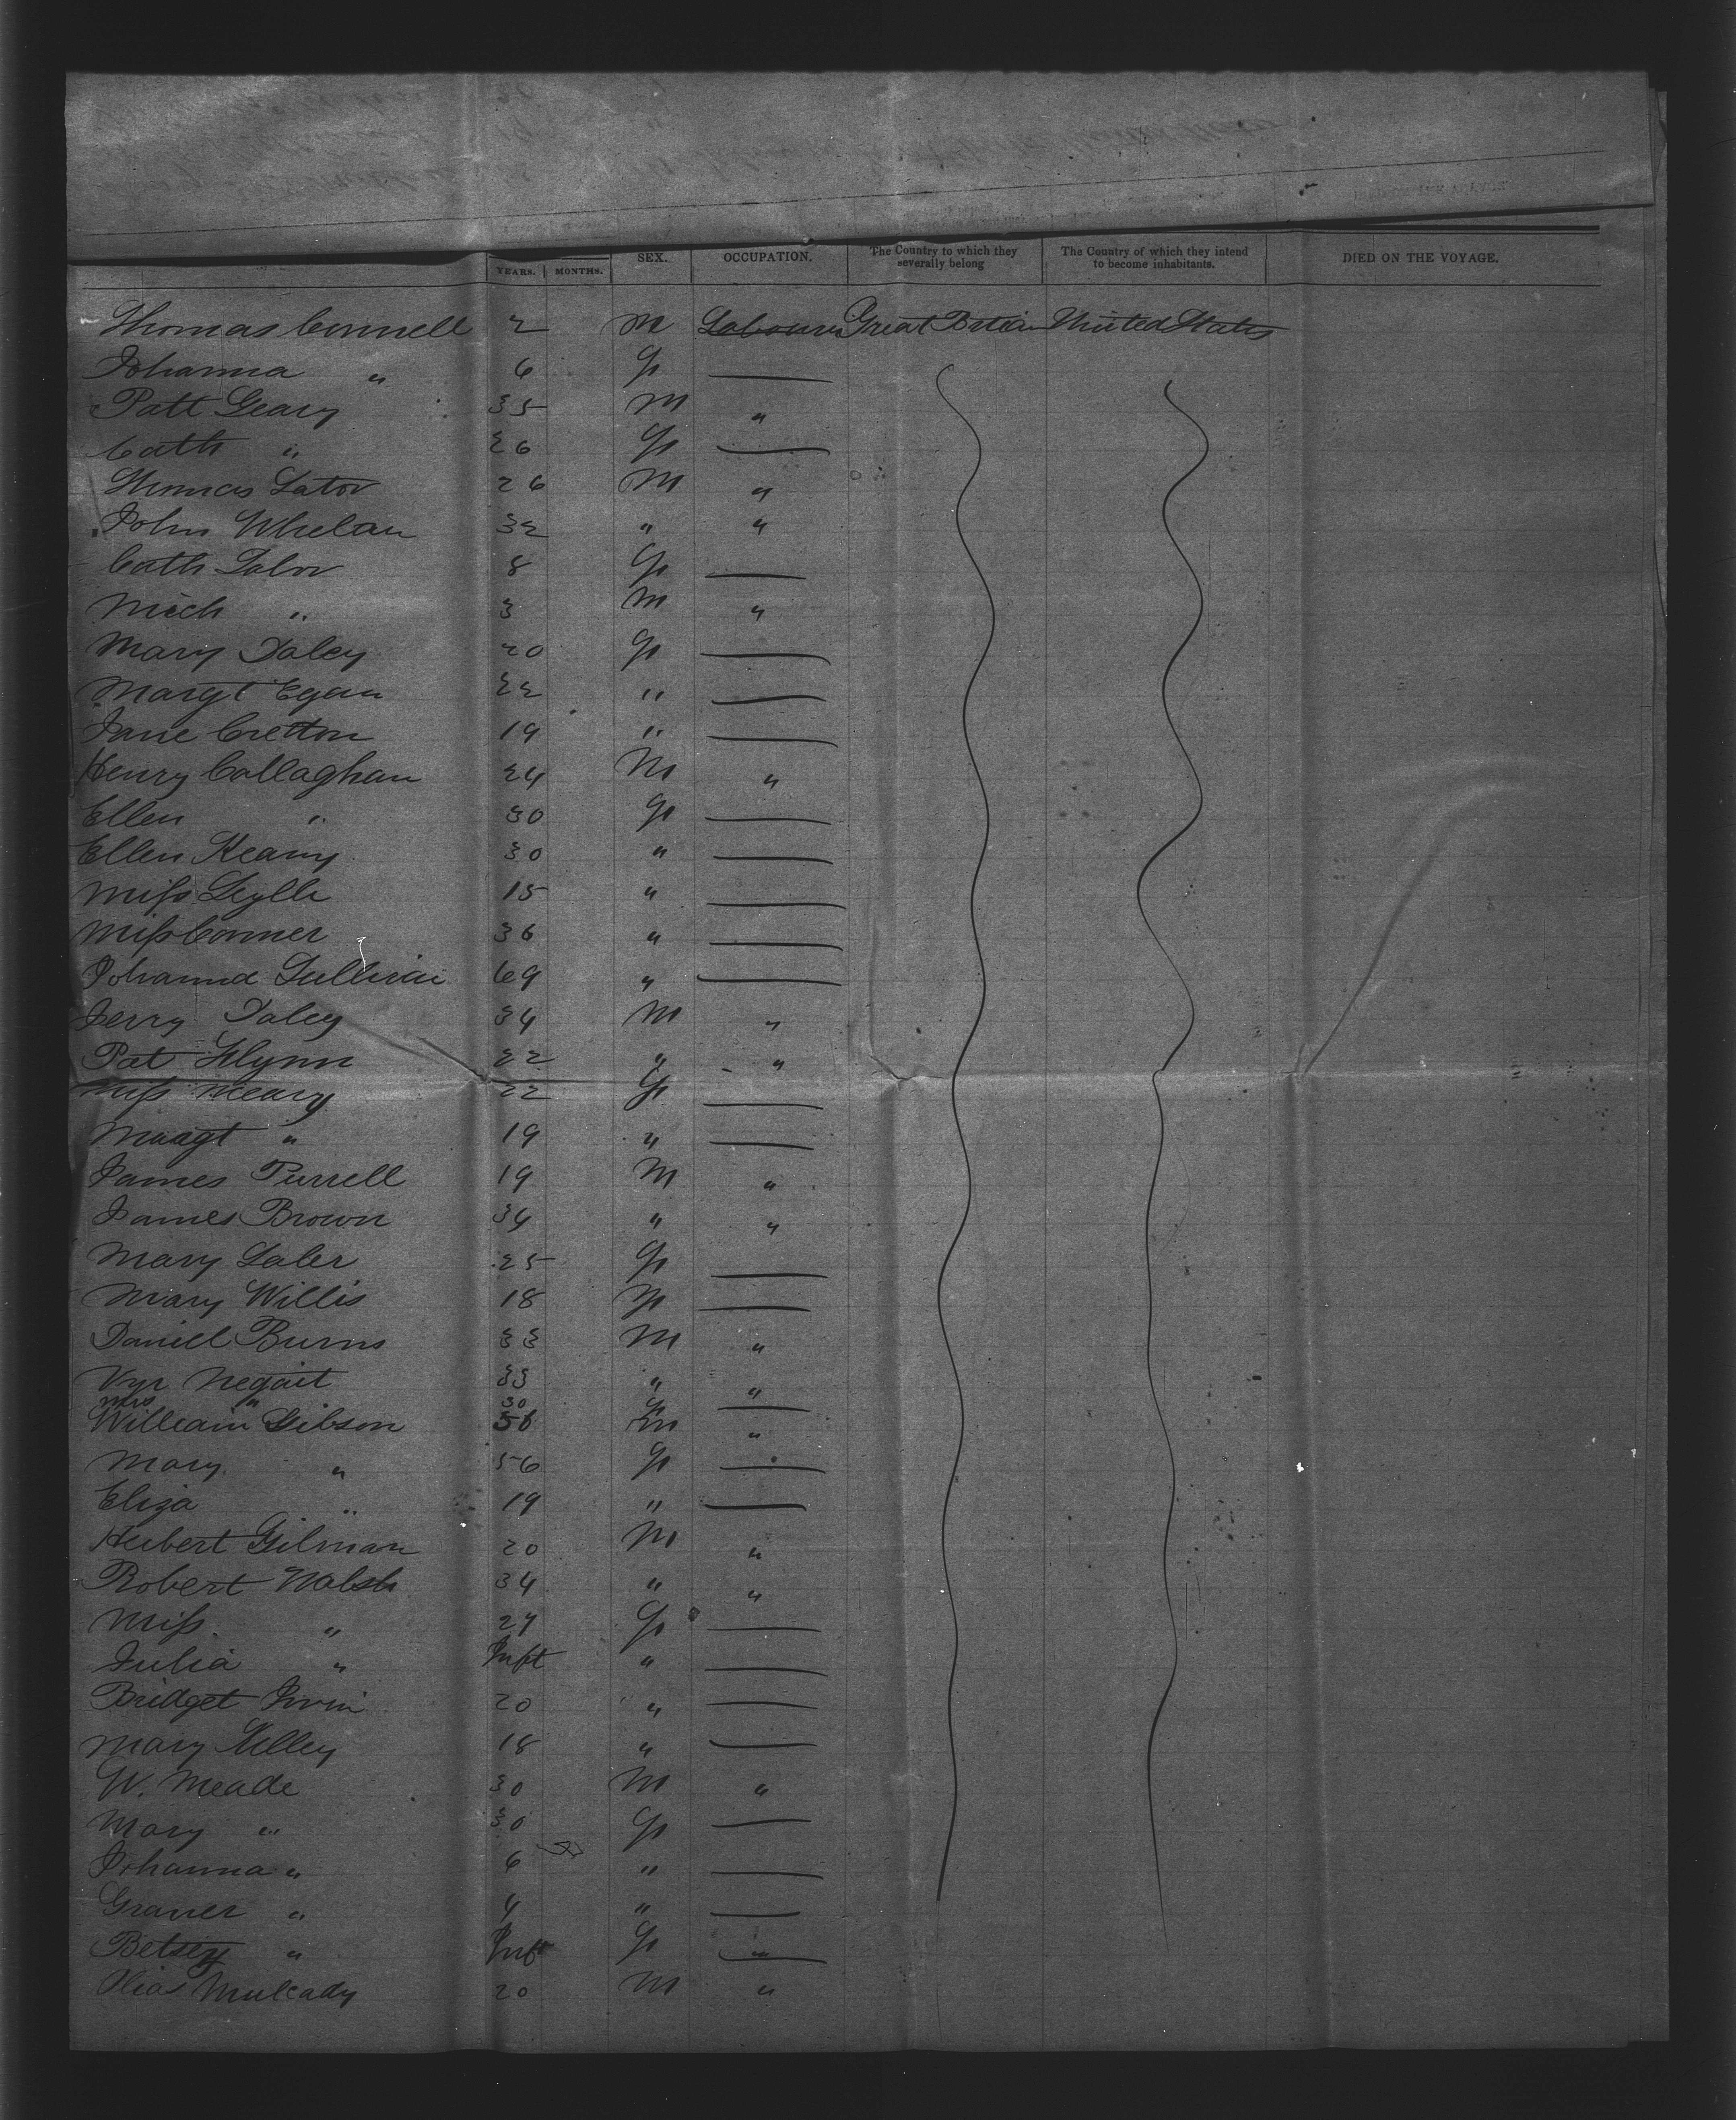 YEARS. MONTHS. SEX. OCCUPATION. The Country to which they severally belong The Country of which they intend to become inhabitants. DIED ON THE VOYAGE.
Thomas Connell 2 M Labourer Great Britain United States
Johanna " 6 F
Patt Geary 35 M "
Cath " 26 F
Thomas Lator 26 M "
John Whelan 32 " "
Cath Lalor 8 F
Mich " 3 M "
Mary Daley 20 F
Margt Egan 22 "
Jane Cretton 19 "
Henry Callaghan 24 M "
Ellen " 30 F
Ellen Keany 30 "
Miss 15 "
Miss Conner 36 "
Johanna Sullivan 69 "
Jerry Daley 34 M "
Pat Flynn 22 " "
Miss Meary 22 F
Maagt " 19 "
James Purrell 19 M "
James Brown 34 " "
Mary Laler 25 F
Mary Willis 18 F
Daniel Burns 33 M "
Negait 33 " "
Mrs " 30 F
William Gibson 56 M "
Mary " 56 F
Eliza " 19 "
Herbert Gilman 20 M "
Robert Walsh 34 " "
Miss " 24 F
Julia " Inft "
Bridget Irvin 20 "
Mary Kelley 18 "
W. Meade 30 M "
Mary " 30 F
Johanna " 6 "
" 4 "
Betsey " Inft F "
Mulcady 20 M "